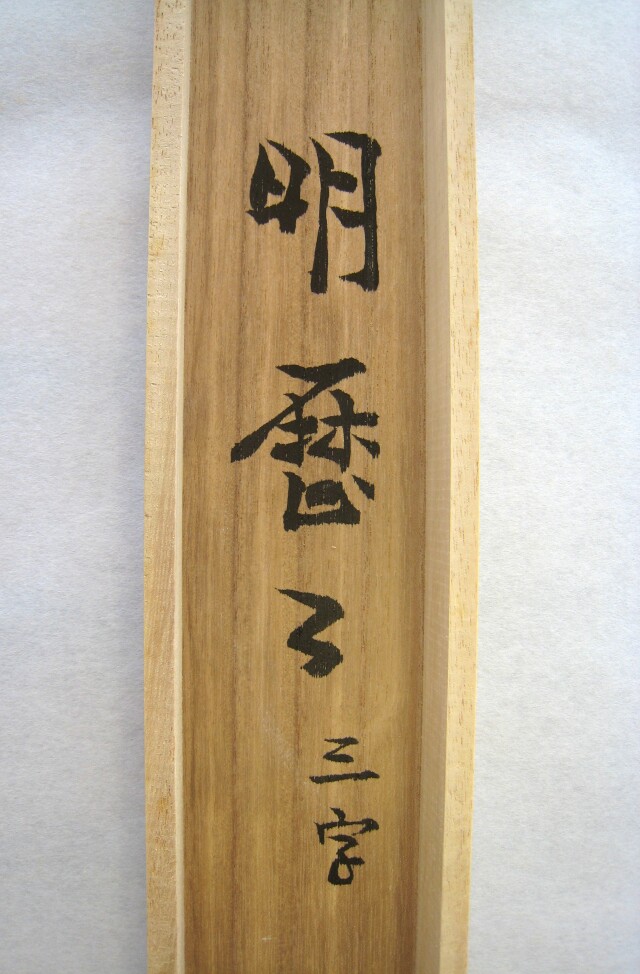 明歴々 三字